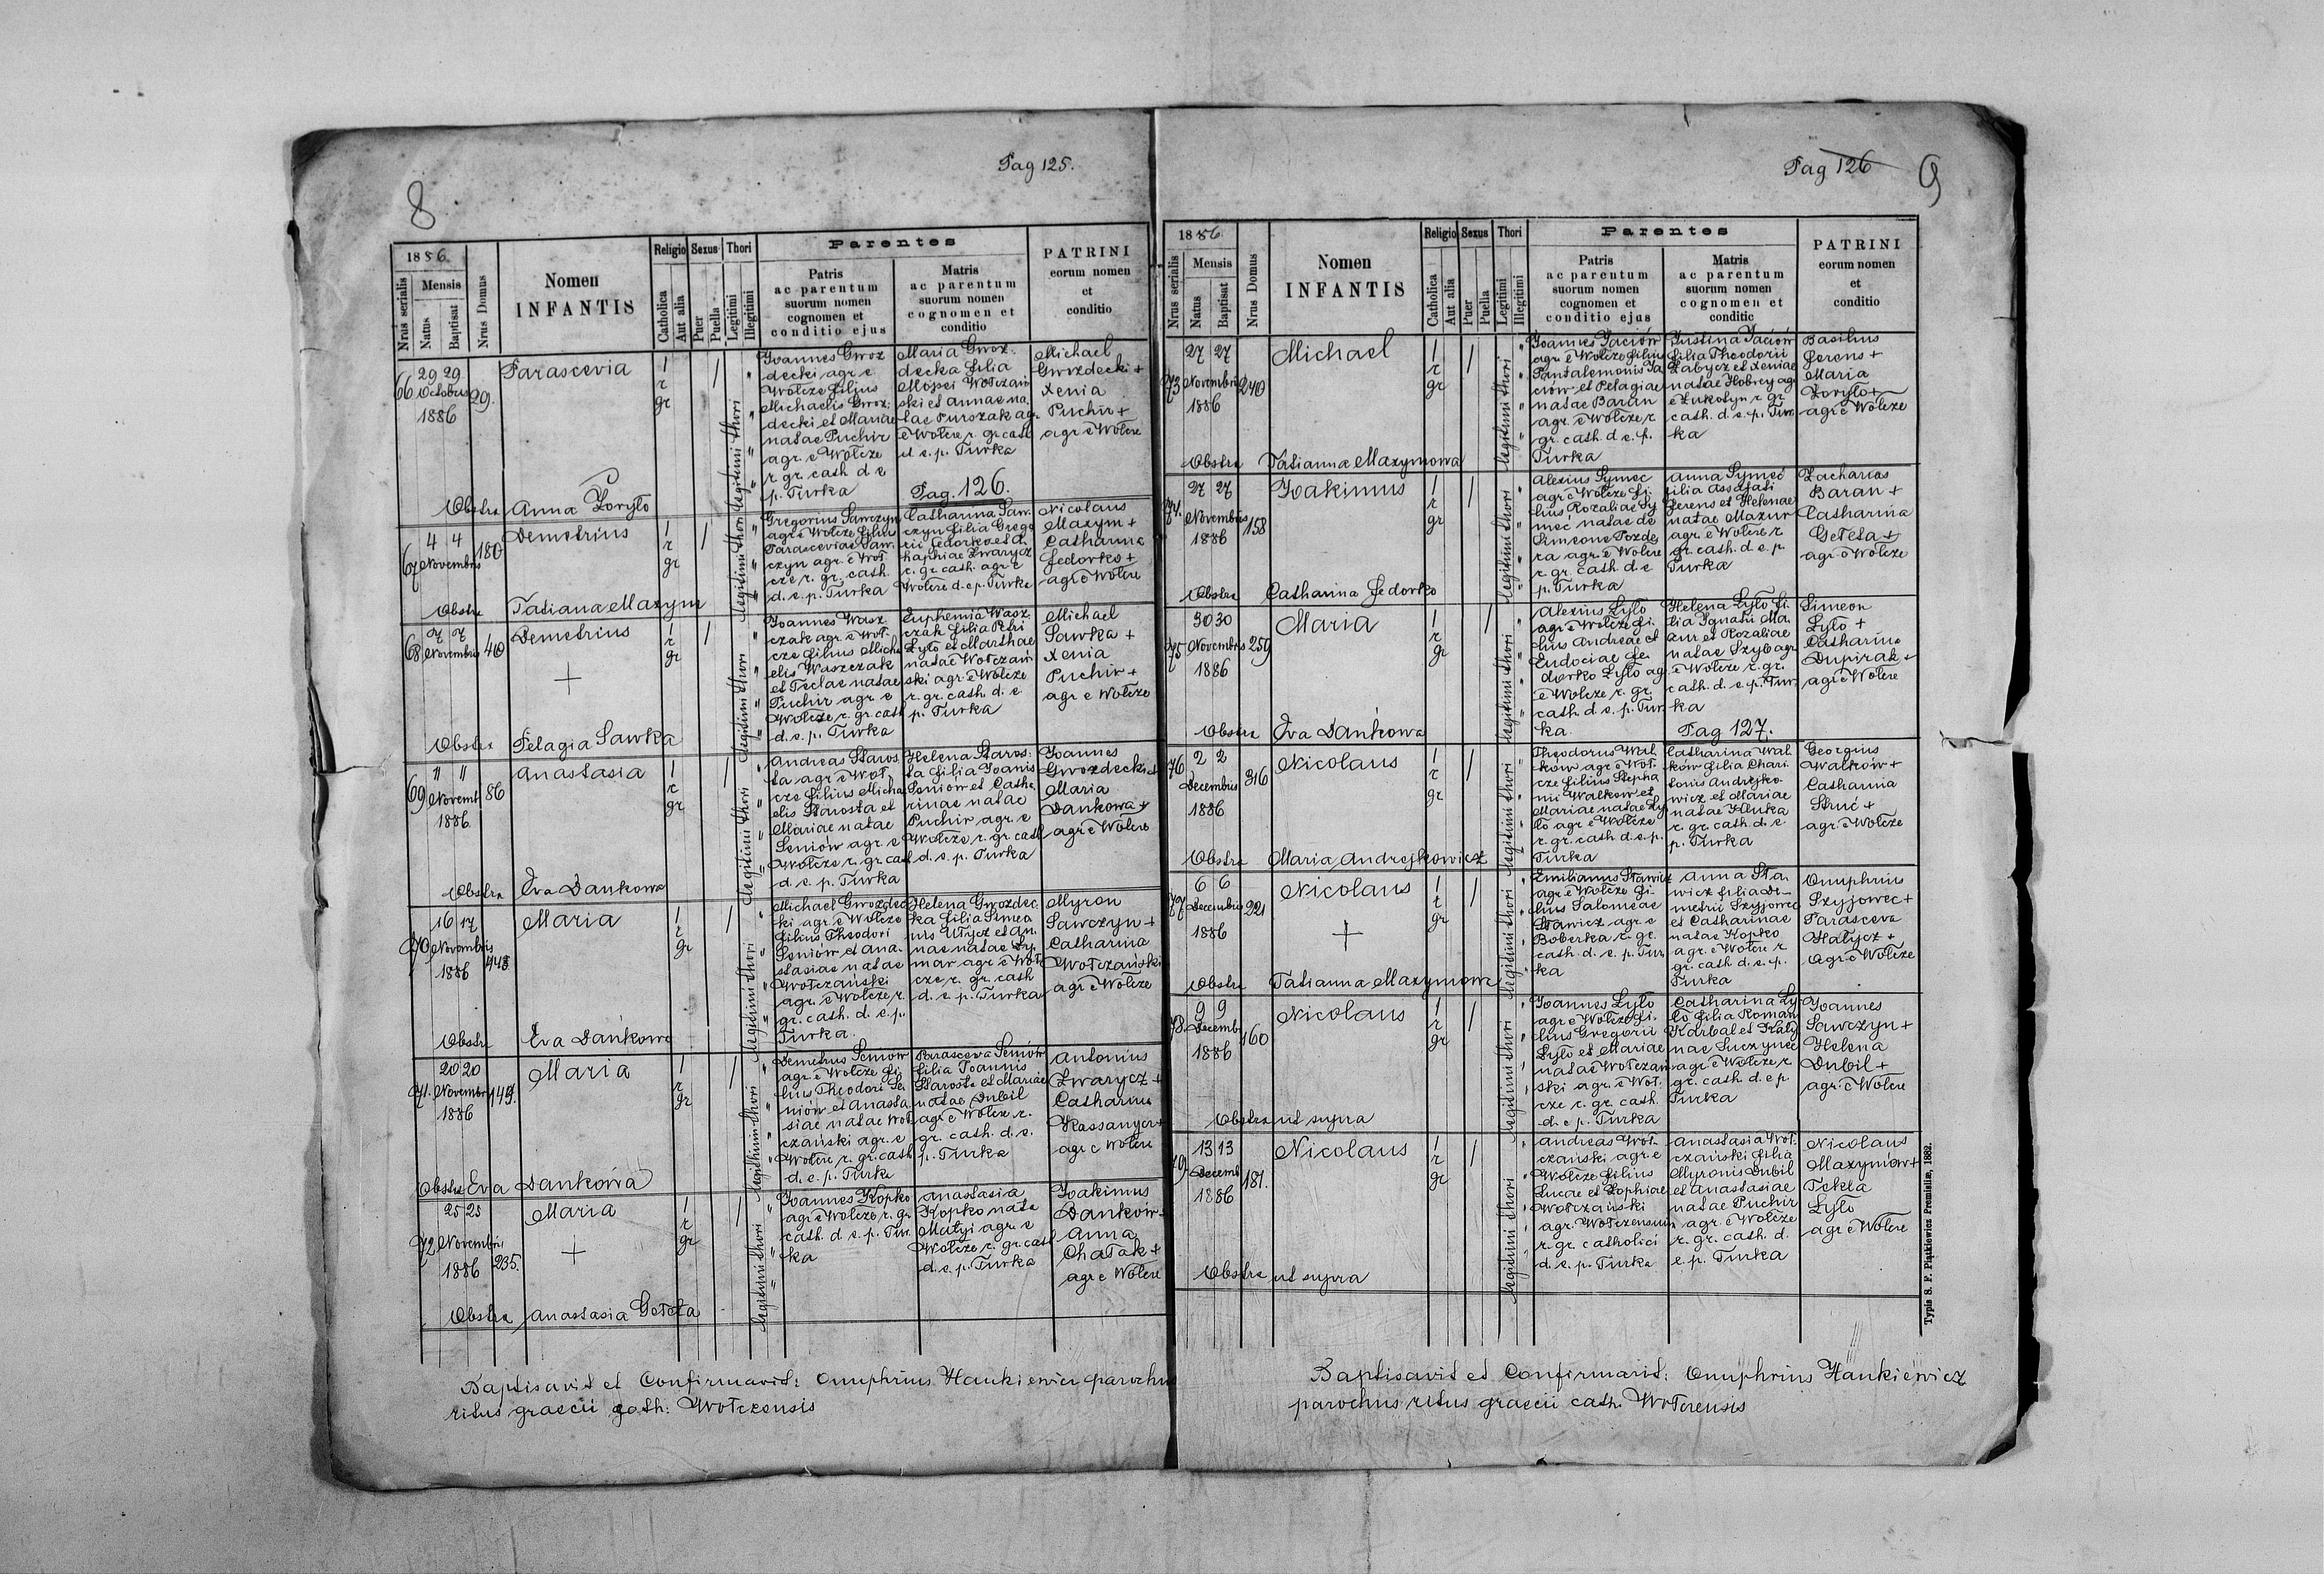 8
Pag 125.
1886.
Nrus serialis
Mensis
Natus
Baptisat
Nrus Domus
Nomen
INFANTIS
Religio
Catholica
Aut alia
Sexus
Puer
Puella
Thori
Legitimi
Illegitimi
Parentes
Patris
ac parentum
suorum nomen
cognomen et
conditio ejus
Matris
ac parentum
suorum nomen
cognomen et
conditio
PATRINI
eorum nomen
et
conditio
66
29 29
Octobris
1886
29.
Parascevia
1
r
gr
legitimi thori
Joannes Gwoz
decki agr e
Wołcze filius
Michaelis Gwoz
decki et Mariae
natae Puchir
agr. e Wołcze
r gr. cath d e
p. Turka
Maria Gwoz
decka filia
Mojsei Wołczań
ski et Annae na
tae Purszak agr
e Wołcze r. gr cath
d e. p. Turka
Pag. 126.
Michael
Gwozdecki +
Xenia
Puchir +
agr e Wołcze
Obstra Anna Zoryło
67
4 4
Novembris
180
Demetrius
1
r
gr
legitimi thori
Gregorius Sawczyn
agr e Wołcze filius
Parasceviae Saw
czyn agr. e Woł
cze r. gr. cath.
d. e. p. Turka
Catharina Saw.
czyn filia Grego
rii Fedorko et A
haphiae Zwarycz
r. gr cath. agr e
Wołcze d. e p. Turka
Nicolaus
Maxym +
Catharina
Fedorko +
agr e Wołcze
Obstra Tatiana Maxym
68
7 7
Novembris
40
Demetrius
1
r
gr
legitimi thori
Joannes Wasz
czak agr e Woł
cze filius Micha
elis Waszczak
et Teclae natae
Puchir agr. e
Wołcze r. gr. cath
d. e. p. Turka
Euphemia Wasz
czak filia Petri
Łyło et Marthae
natae Wołczań
ski agr. e Wołcze
r. gr. cath. d. e
p. Turka
Michael
Sawka +
Xenia
Puchir +
agr e Wołcze
Obstra Pelagia Sawka
69
11 11
Novemb
1886.
86
Anastasia
1
r
gr
legitimi thori
Andreas Staros
ta agr e Woł
cze filius Micha
elis Starosta et
Mariae natae
Seniów agr e
Wołcze r. gr. cath
d. e. p. Turka
Helena Staros.
ta filia Joanis
Seniów et Catha
rinae natae
Puchir agr. e
Wołcze r. gr. cath
d. e. p. Turka
Joannes
Gwozdecki +
Maria
Dankowa +
agr e Wołcze
Obstra Eva Dankowa
70
16 17
Novembris
1886
143
Maria
1
r
gr
legitimi thori
Michael Gwozdec
ki agr. e Wołcze
filius Theodori
Seniów et Ana
stasiae natae
Wołczański
agr. e Wołcze r.
gr. cath. d. e. p.
Turka.
Helena Gwozdec
ka filia Simeo
nis Ułycz et An
nae natae
mar agr e Woł
cze r. gr. cath
d. e. p. Turka
Myron
Sawczyn +
Catharina
Wołczański
agr e Wołcze
Obstra Eva Dańkowa
71.
20 20
Novembr
1886
149.
Maria
1
r
gr
legitimi thori
Demetrus Seniów
agr e Wołcze fi.
lius Theodori Se
niów et Anasta
siae natae Woł
czański agr. e
Wołcze r. gr. cath
d. e. p. Turka
Parasceva Seniów
filia Joannis
Starosta et Mariae
natae Dubil
agr e Wołcze r.
gr. cath. d. e.
p. Turka
Antonius
Zwarycz +
Catharina
Kassanycz +
agr e Wołcze
Obstra Eva Dankowa
72
25 25
Novembris
1886
235.
Maria
1
r
gr
legitimi thori
Joannes Kopko
agr e Wołcze r. gr
cath. d e. p. Tur
ka
Anastasia
Kopko nata
Matyi agr. e
Wołcze r. gr. cath
d. e. p. Turka
Joakimus
Danków +
Anna
Chałak +
agr e Wołcze
Obstra Anastasia Geleta
Baptisavit et Confirmavit: Onuphrius Hankiewicz parochus
ritus graecii cath: Wołczensis
9
Pag 126
1886.
Nrus serialis
Mensis
Natus
Baptisat
Nrus Domus
Nomen
INFANTIS
Religio
Catholica
Aut alia
Sexus
Puer
Puella
Thori
Legitimi
Illegitimi
Parentes
Patris
ac parentum
suorum nomen
cognomen et
conditio ejus
Matris
ac parentum
suorum nomen
cognomen et
conditio
PATRINI
eorum nomen
et
conditio
73
27 27
Novembris
1886
240
Michael
1
r
gr
legitimi thori
Joannes Jaciów
agr e Wołcze filius
Pantalemonis Ja
ciów et Pelagiae
natae Baran
agr. e Wołcze r
gr. cath. d. e. p.
Turka
Justina Jaciów
filia Theodorii
Łabycz et Xeniae
natae Hobrey agr
e Łukołyn r gr
cath. d. e. p. Tur
ka
Basilius
Ferens +
Maria
Zoryło +
agr e Wołcze
Obstra Tatianna Maxymowa
74.
27 27
Novembris
1886
158
Joakimus
1
r
gr
legitimi thori
Alexius Symec
agr e Wołcze fi.
lius Rozaliae Sy
meć natae de
Simeone Pozde
ra agr. e Wołcze
r. gr. cath. d e
p. Turka
Anna Symeć
filia Assafati
Ferens et Helenae
natae Mazur
agr. e Wołcze r
gr. cath. d. e. p.
Turka
Zacharias
Baran +
Catharina
Geleta +
agr e Wołcze
Obstra Catharina Fedorko
75
30 30
Novembris
1886
259
Maria
1
r
gr
legitimi thori
Alexius Łyło
agr e Wołcze fi.
lius Andreae et
Eudociae Fe
dorko Łyło ag
e Wołcze r. gr.
cath. d. e. p. Tur
ka.
Helena Łyło fi.
lia Ignatii Ma.
zur et Rozaliae
natae Szyb agr
e Wołcze r. gr.
cath. d. e. p. Tur.
ka
Pag 127.
Simeon
Łyło +
Catharina
Dupirak +
agr e Wołcze
Obstra Eva Dańkowa
76
2 2
Decembris
1886
316
Nicolaus
1
r
gr
legitimi thori
Theodorus Wał
ków agr e Woł.
cze filius Stepha
nii Wałków et
Mariae natae Ły
ło agr e Wołcze
r. gr. cath. d. e. p.
Turka
Catharina Wał
ków filia Chari
tonis Andrejko
wicz et Mariae
natae Hłuka
r. gr. cath. d. e.
p. Turka
Georgius
Wałków +
Catharina
Struć +
agr. e Wołcze
Obstra Maria Andrejkowicz
77
6 6
Decembris
1886
221
Nicolaus
1
r
gr
legitimi thori
Emilianus Stawicz
agr e Wołcze fi
lius Salomeae
Stawicz agr e
Boberka r. gr.
cath. d. e. p. Tur
ka
Anna Sta.
wicz filia De
metrii Szyjowec
et Catharinae
natae Kopko
agr. e Wołcze r.
gr. cath. d. e. p.
Turka
Onuphrius
Szyjowec +
Parasceva
Hałycz +
agr e Wołcze
Obstra Tatianna Maxymowa
78.
9 9
Decemb
1886
160
Nicolaus
1
r
gr
legitimi thori
Joannes Łyło
agr e Wołcze fi.
lius Gregorii
Łyło et Mariae
natae Wołczań
ski agr. e Woł.
cze r. gr. cath.
d. e p. Turka
Catharina Ły
ło filia Roman
Karbal et Katy
nae Suczyniec
agr. e Wołcze r
gr. cath. d. e p
Turka
Joannes
Sawczyn +
Helena
Dubil +
agr. e Wołcze
Obstra ut supra
79
13 13
Decemb
1886
181.
Nicolaus
1
r
gr
legitimi thori
Andreas Woł.
czański agr. e
Wołcze filius
Lucae et Zophiae
Wołczański
agr. Wołczensium
r. gr. catholici
d. e. p. Turka
Anastasia Woł.
czański filia
Myronis Dubil
et Anastasiae
natae Puchir
agr. e Wołcze
r. gr. cath. d.
e. p. Turka
Nicolaus
Maxymów +
Tekla
Łyło
agr e Wołcze
Obstra ut supra
Typis S. F. Piątkiewicz Premisliae, 1882.
Baptisavit et Confirmavit: Onuphrius Hankiewicz
parochus ritus graecii cath. Wołczensis